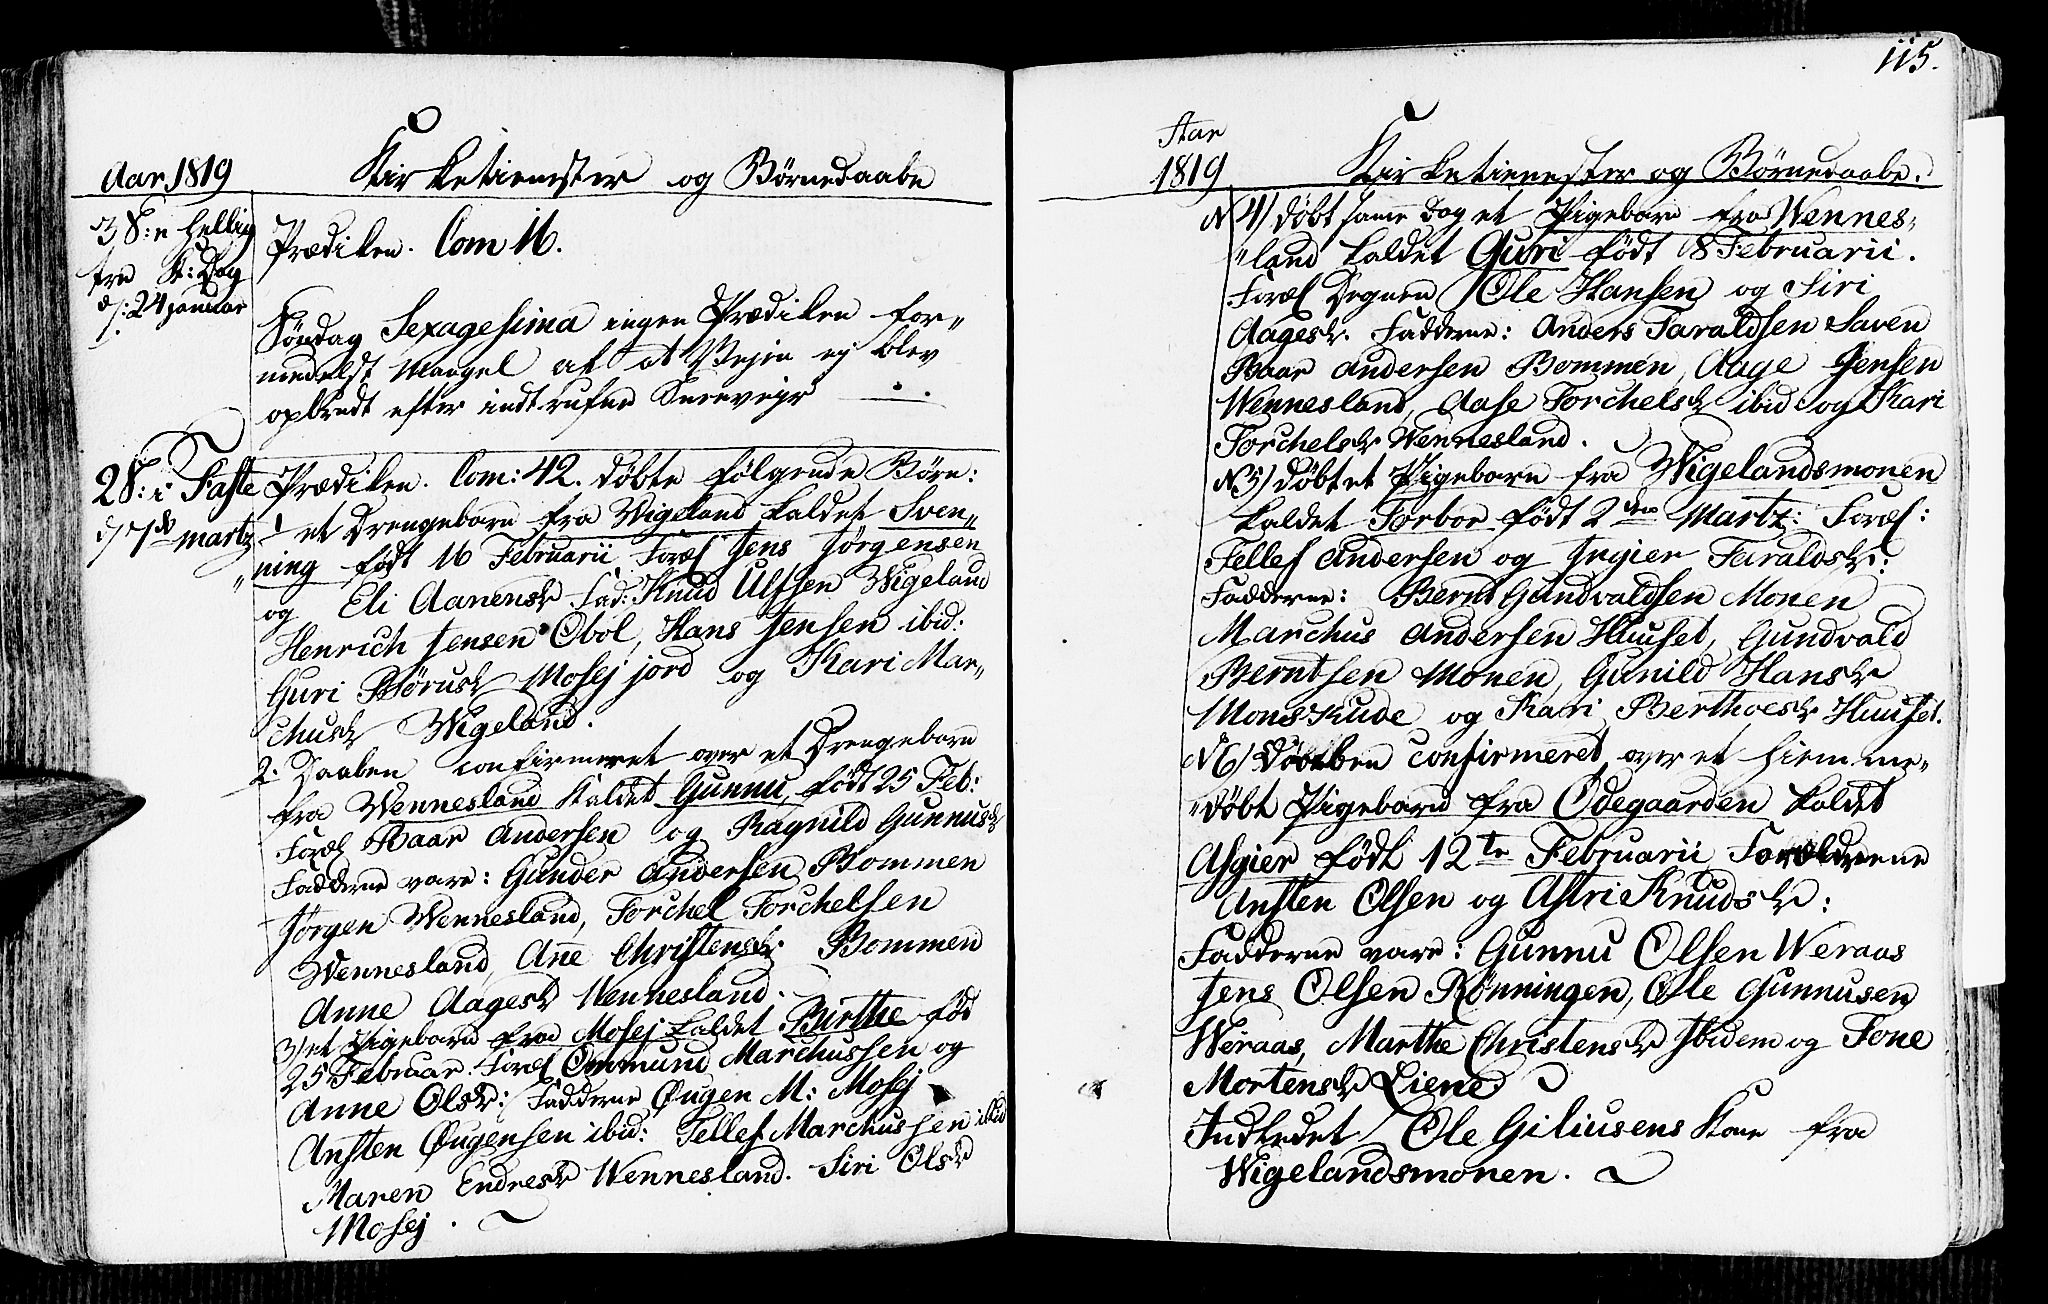 Aar 1819
Kirketienester og Børnedaabe
3 S: e hellig
tre K: Dag
d: 24 januar
Prædiken. Com 16.
Søndag Sexagesima ingen Prædiken for„
medelst Mangel af at Vejen ej blev
opbrudt efter indtrufne Sneevejr
2 S: i Faste
d 7de martz
Prædiken. Com: 42. døbte følgende Børn:
1 et Drengebarn fra Wigeland kaldet Sven„
„ning født 16 Februarii Foræl Jens Jørgensen
og Eli Aanensdr Fad: Knud Ulfsen Wigeland
Henrich Jensen Obol, Hans Jensen ibid:
Guri Børusdr Mosejjord og Kari Mar„
chusdr Wigeland.
2. Daaben confirmeret over et Drengebarn
fra Wennesland Kaldet Gunnu, født 25 Feb:
Foræl Baar Andersen og Ragnild Gunnusdr
Fadderne vare: Gunder Andersen Bommen
Jørgen Wennesland, Torchel Torchelsen
Wennesland, Ane Christensdr Bommen
Anne Aagesdr Wennesland.
3/ et Pigebarn fra Mosej kaldet Birthe fød
25 Februar. Foræl Ommund Marchussen og
Anne Olsdr: Fadderne Øugen M: Mosej
Ansten Øugensen ibid: Tellef Marchussen ibid
Maren Endresdr Wennesland. Siri Olsdr
Mosej.
115.
Aar
1819
Kirketienester og Børnedaabe.
N 4/ døbt samme Dag et Pigebarn fra Wennes„
„land kaldet Guri født 8 Februarii.
Foræl Degnen Ole Hansen og Siri
Aagesdr. Fadderne: Anders Taraldsen Saven
Baar Andersen Bommen, Aage Jensen
Wennesland, Aase Torchelsdr ibid og Kari
Torchelsdr Wennesland.
N 5/ døbt et Pigebarn fra Wigelandsmonen
kaldet Torbor født 2den Martz: Foræl:
Tellef Andersen og Ingier Taraldsdr:
Fadderne: Bernt Gundvaldsen Monen
Marchus Andersen Huuset, Gundvald
Berntsen Monen, Gunild Hansdr
Monskude og Kari Berthoesdr Huuset.
N 6/ Daaben confirmeret over et hiemme„
„døbt Pigebarn fra Ødegaarden kaldet
Asgier født 12te Februarii Forældrene
Ansten Olsen og Astri Knudsdr:
Fadderne vare: Gunnu Olsen Weraas
Jens Olsen Rønningen, Ole Gunnusen
Weraas, Marthe Christensdr Ibidem og Tone
Mortensdr Liene
Indledet Ole Giliusens Kone fra
Wigelandsmonen.